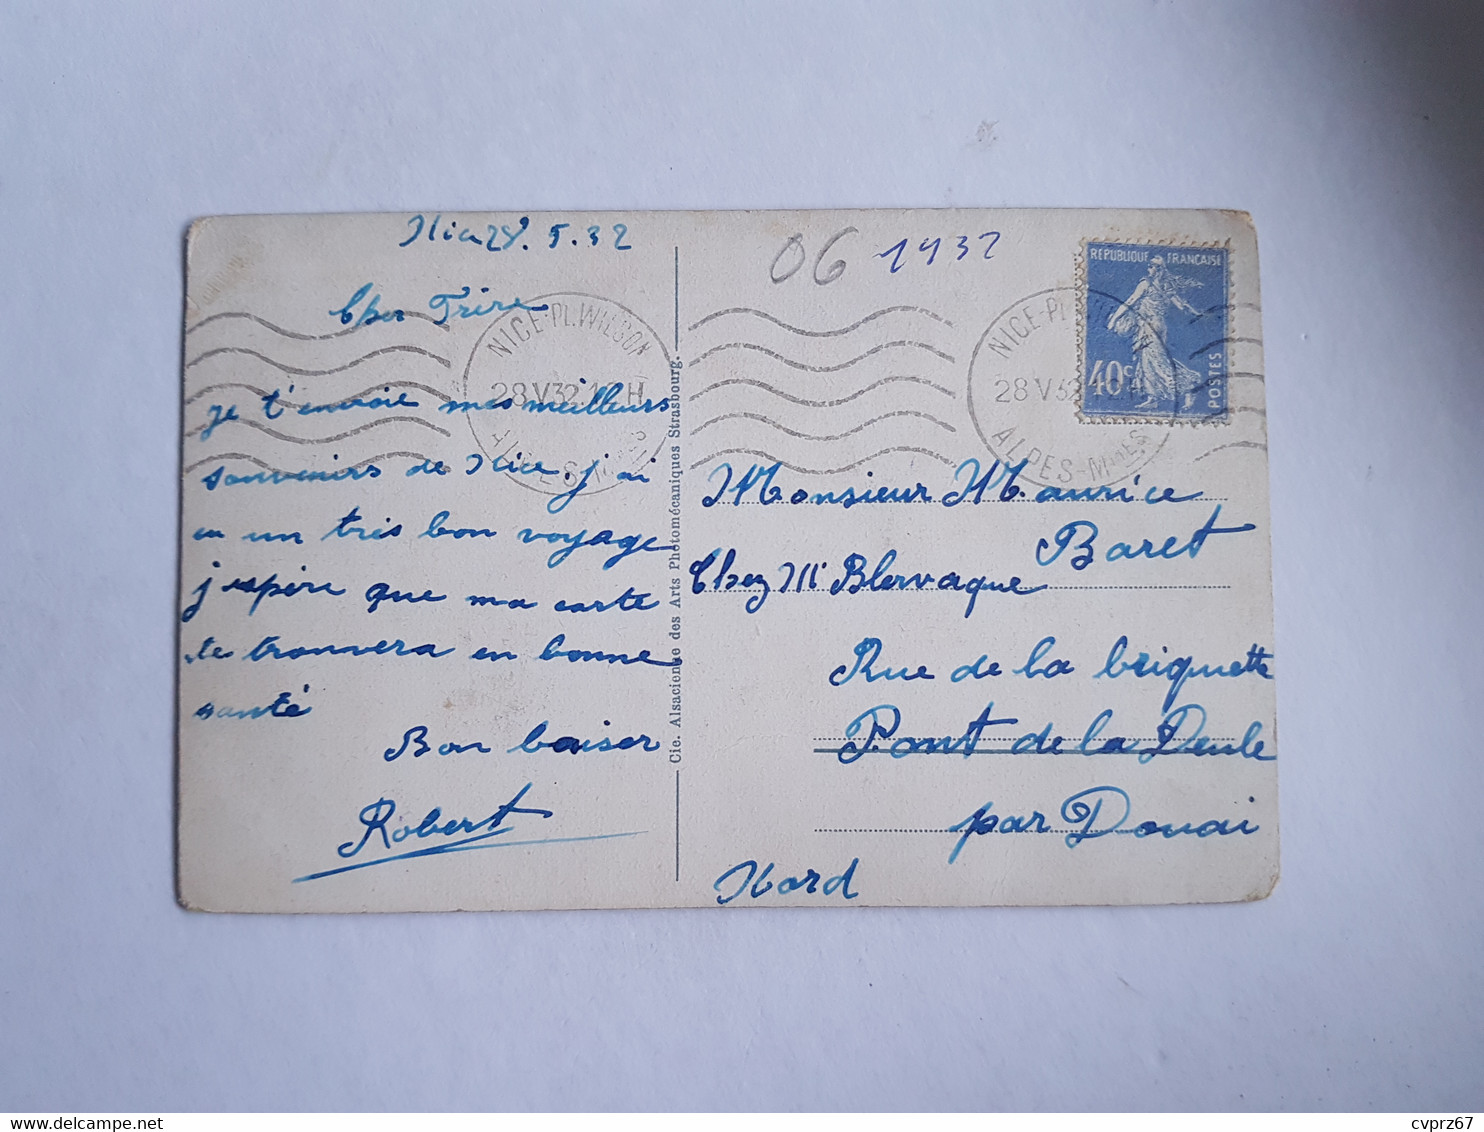 Nice 28.5.32
Cher Frère
je t'envoie mes meilleurs
souvenirs de Nice. j'ai
eu un très bon voyage
j'espère que ma carte
te trouvera en bonne
santé
Bon baiser
Robert
Cie. Alsacienne des Arts Photomécaniques Strasbourg.
06 1932
NICE-PL. WILSON
28 V 32
ALPES-MMES
NICE-PL. WILSON
28 V 32
ALPES-MMES
REPUBLIQUE FRANCAISE
40c
POSTES
Monsieur Maurice
Baret
Chez Mr Blervaque
Rue de la briquette
Pont de la Deule
par Douai
Nord
cvprz67